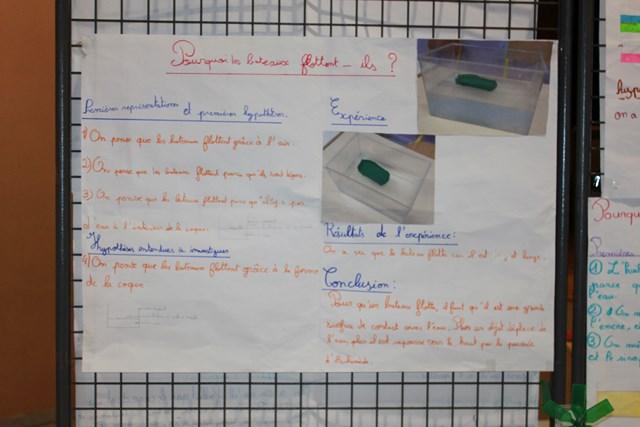 Pourquoi les bateaux flottent-ils ?
Premières représentations et premières hypothèses.
1) On pense que les bateaux flottent grâce à l'air.
2) On pense que les bateaux flottent parce qu'ils sont légers.
3) On pense que les bateaux flottent parce qu'il n'y a pas
d'eau à l'intérieur de la coque.
Hypothèses entendues à investiguer
4) On pense que les bateaux flottent grâce à la forme
de la coque
Expérience
Résultats de l'expérience :
On a vu que le bateau flotte car il est et large.
Conclusion :
Pour qu'un bateau flotte, il faut qu'il ait une grande
surface de contact avec l'eau. Plus un objet déplace de
l'eau, plus il est repoussé vers le haut par la poussée
d'Archimède.
hypo
on a
Pourquoi
Premières
1) L'
parce que
l'eau.
2)
3) On
et le